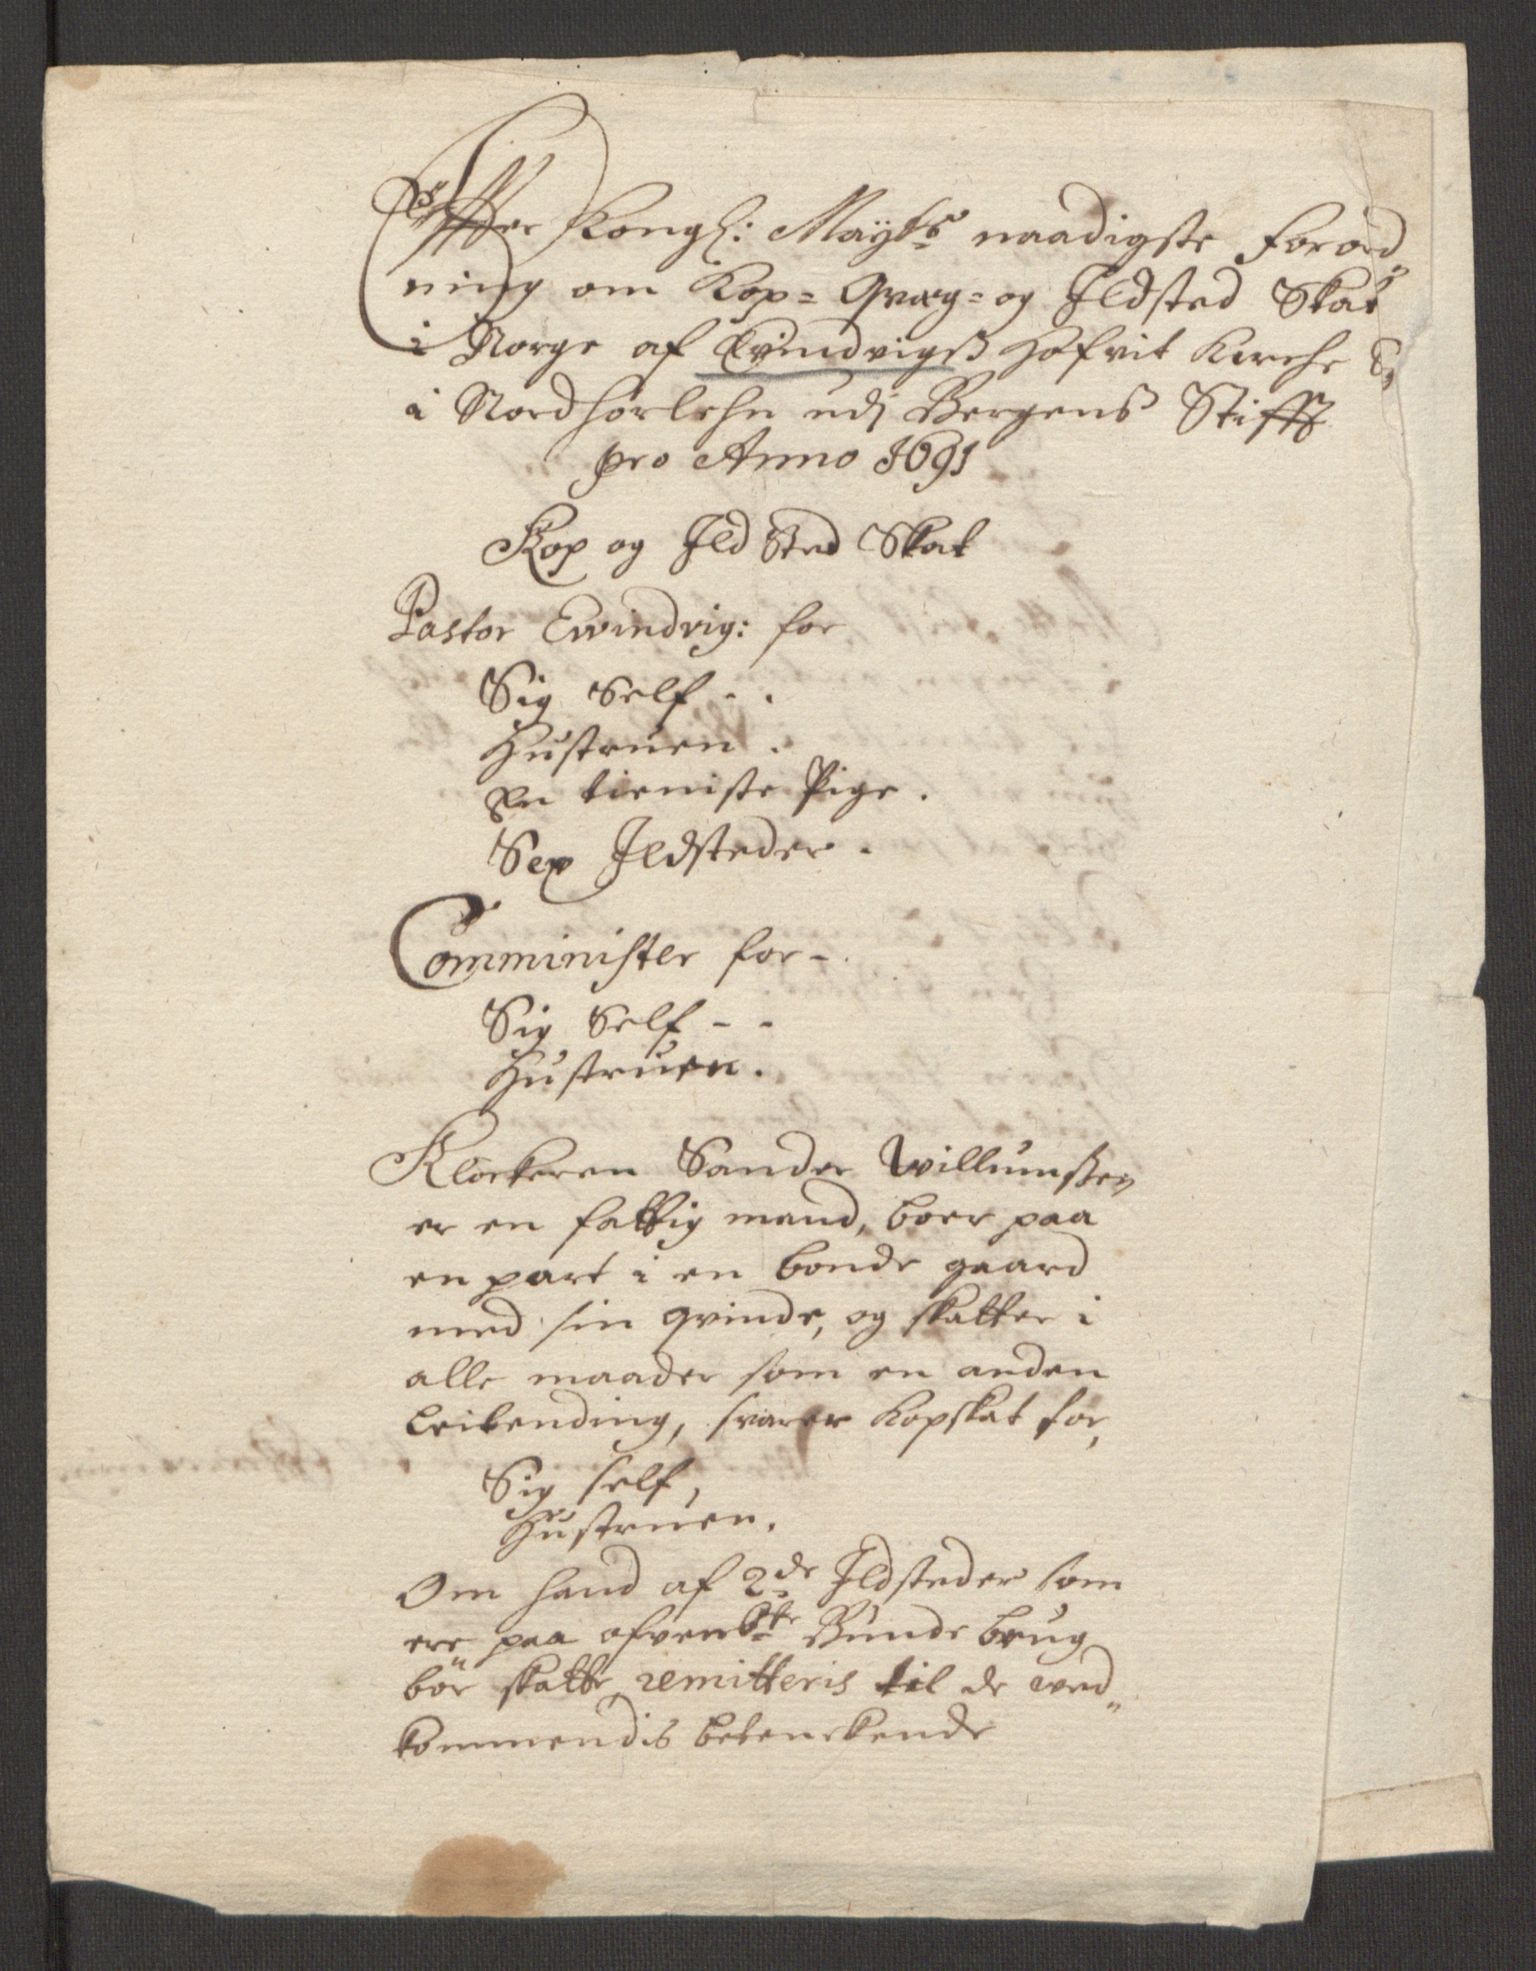 Effter Kongl: Mayts naadigste Forord
ning om Kop= Qvæg= og Ildsted Skat
i Norge af Evindvigs Hofvit Kirche
i Nordhorlehn udj Bergens Stifft
pro Anno 1691
Kop og Ild Sted Skat
Pastor Ewindvig: for
Sig Self - .
Hustruen .
En tieniste Pige .
Sex Ildsteder .
Comminister for - .
Sig Self - -
Hustruen .
Klockeren Sander Willumsen
er en fattig mand, boer paa
en part i en bonde gaard
med sin qvinde, og skatter i
alle maader som en anden
leilending, svarer kopskat for,
Sig self,
Hustruen.
Om hand af 2de Ildsteder som
ere paa Bunde brug
bør skatte, remitteris til de ved
kommendis betenckende